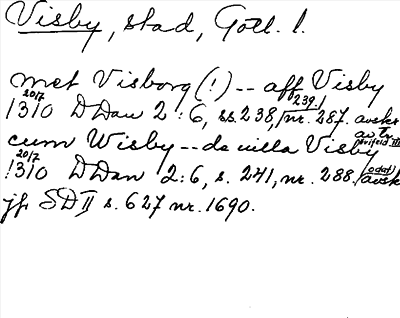 Visby, stad, Gotl. l.
met Visborg (!) -- aff Visby
20/7 1310 DDan 2:6, ss. 238, 239, nr. 287. avskr av tr.
cum Wisby -- de uilla Visby
20/7 1310 DDan 2:6, s. 241, nr. 288. (odat) avskr
jfr SD II s. 627 nr. 1690.